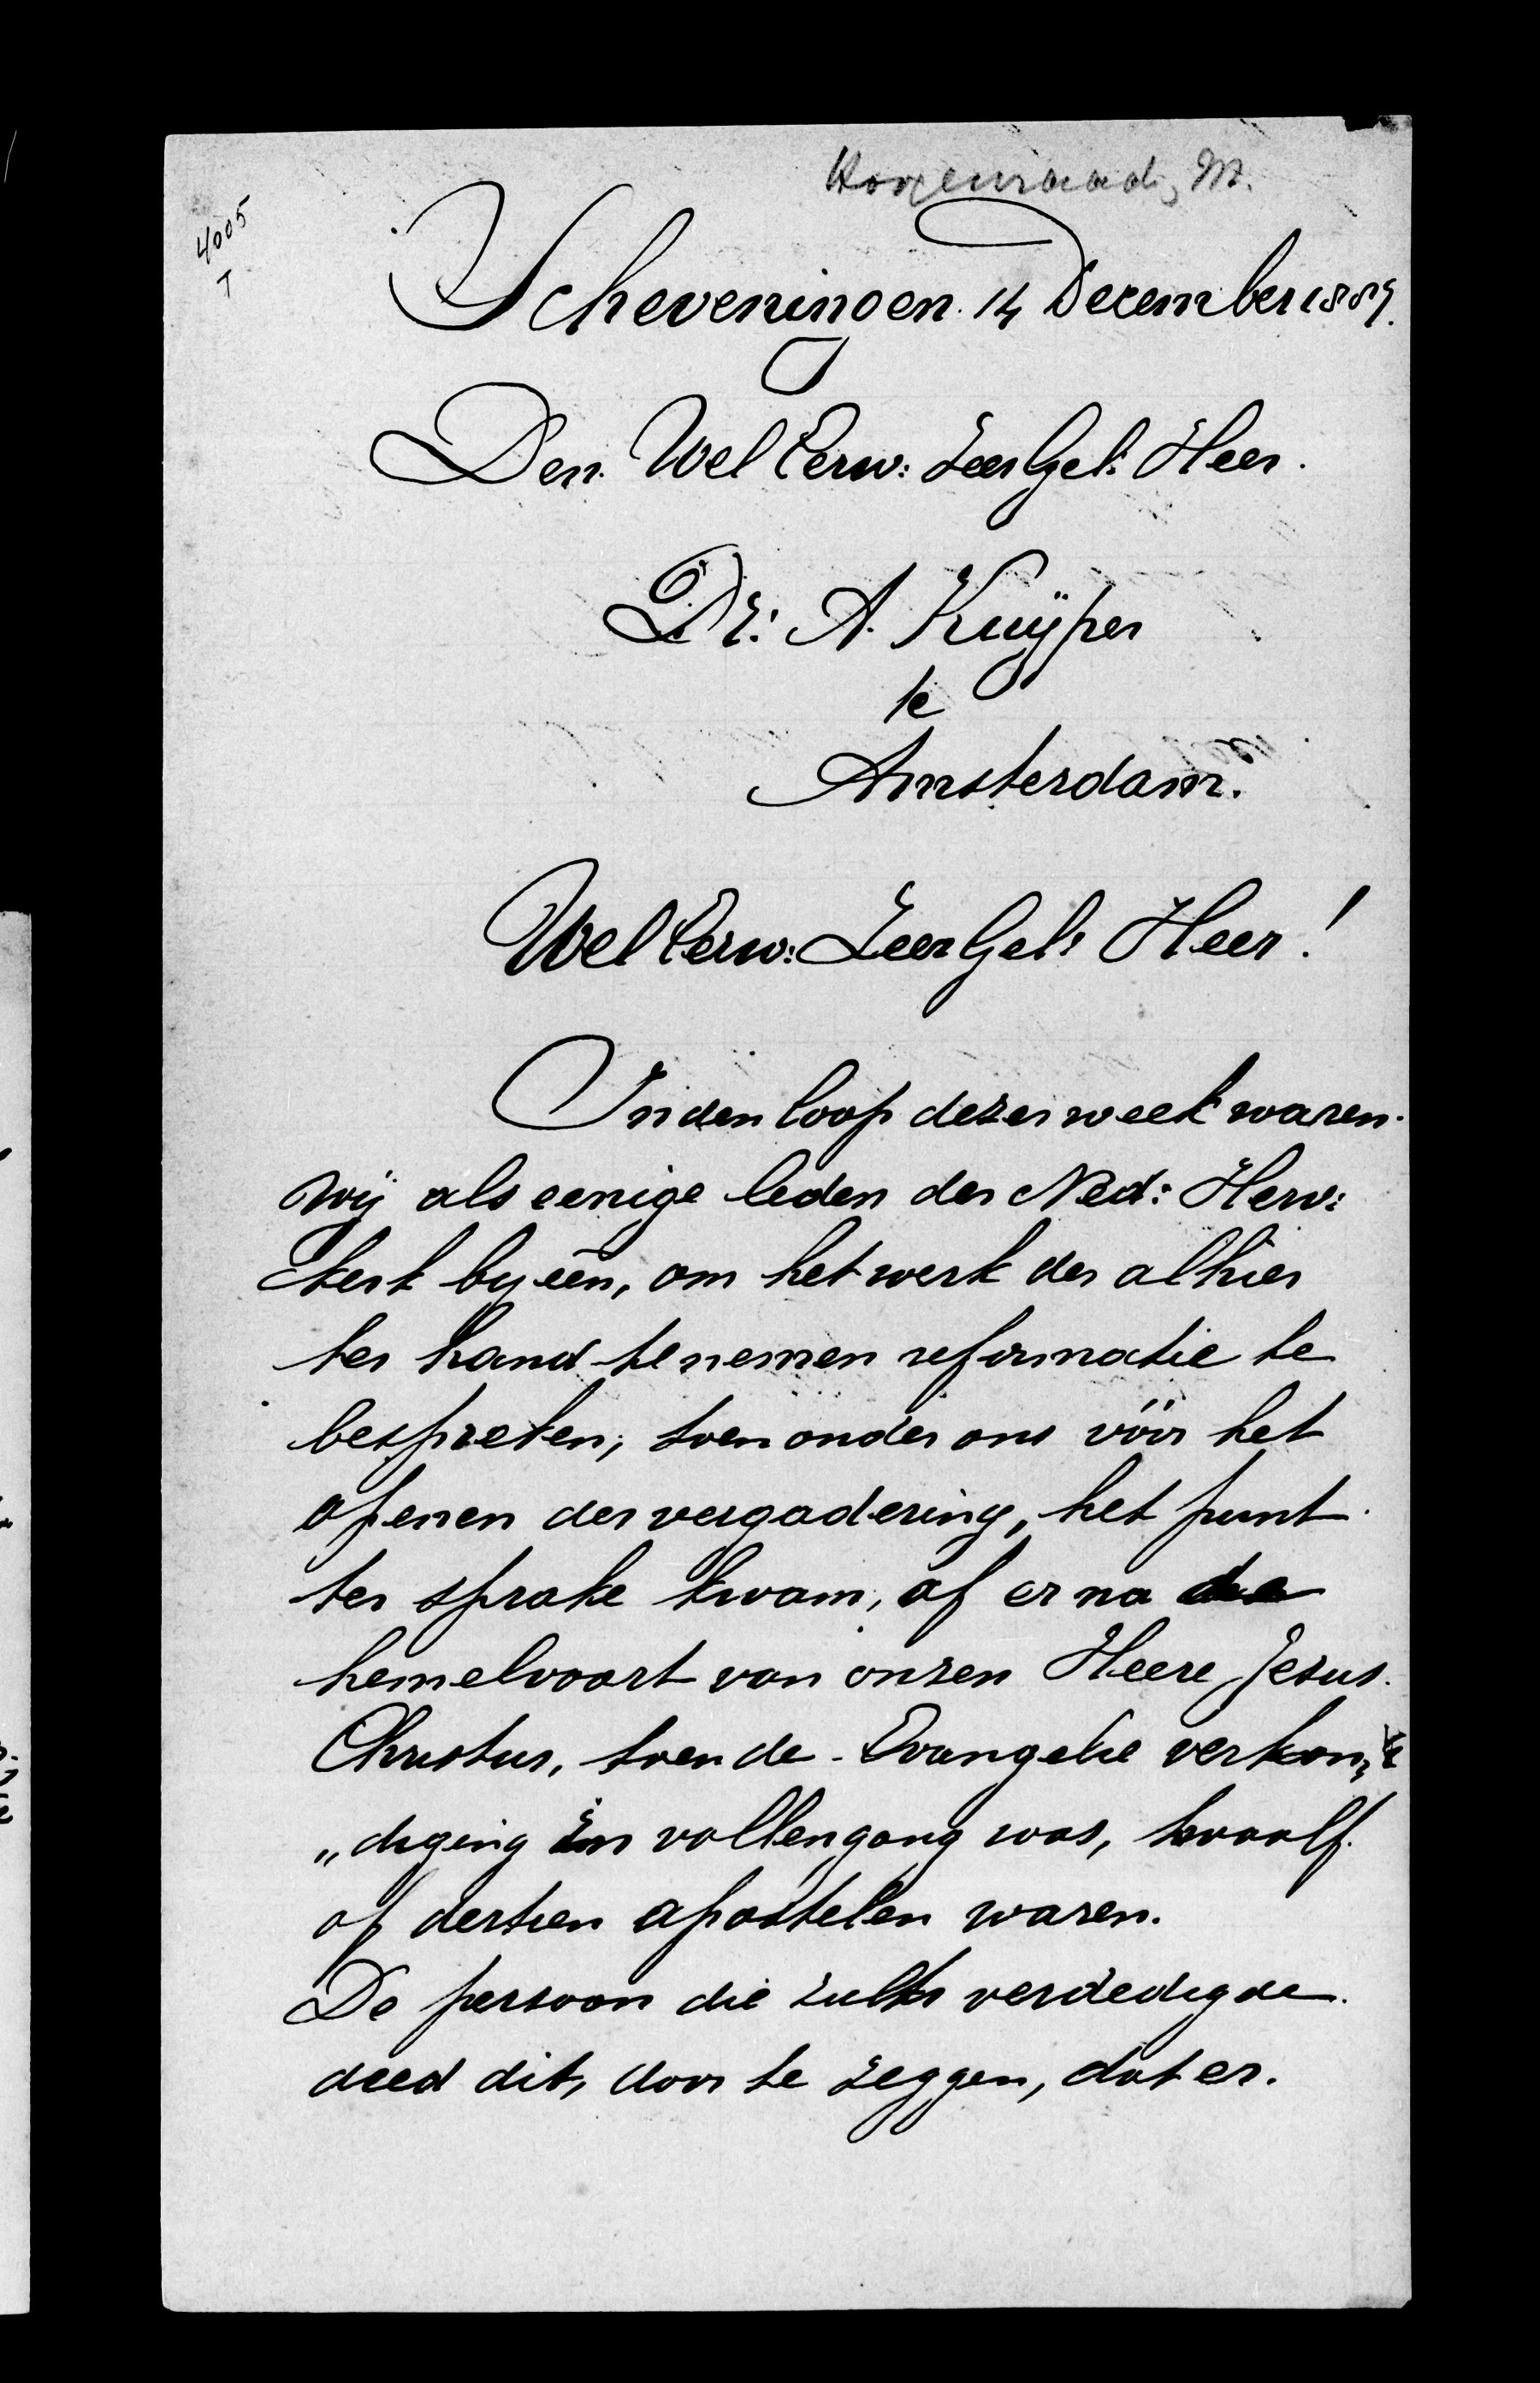 4005
Scheveningen 14 December 1889.
Den Wel Eerw: ZeerGel: Heer.
Dr: A. Kuÿper
te
Amsterdam.
Wel Eerw: ZeerGel: Heer!
In den loop dezer week waren
wij als eenige leden der Ned: Herv:
kerk byeen, om het werk der alhier
ter hand te nemen reformatie te
bespreken, toen onder ons vóór het
openen der vergadering, het punt
ter sprake kwam, of er na de
hemelvaart van onzen Heere Jesus
Christus, toen de Evangelie verkon„
„diging in vollen gang was, twaalf
of dertien apostelen waren.
De persoon die zulks verdedigde
deed dit, door te zeggen, dat er.